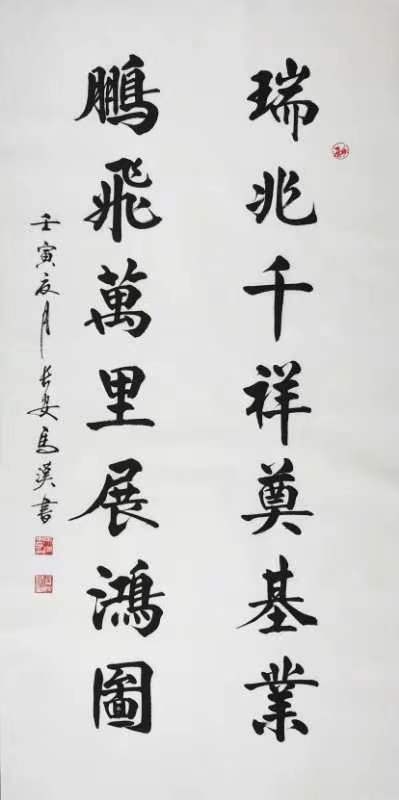 瑞兆千祥奠基業
鵬飛萬里展鴻圖
壬寅夏月長安馬漢書